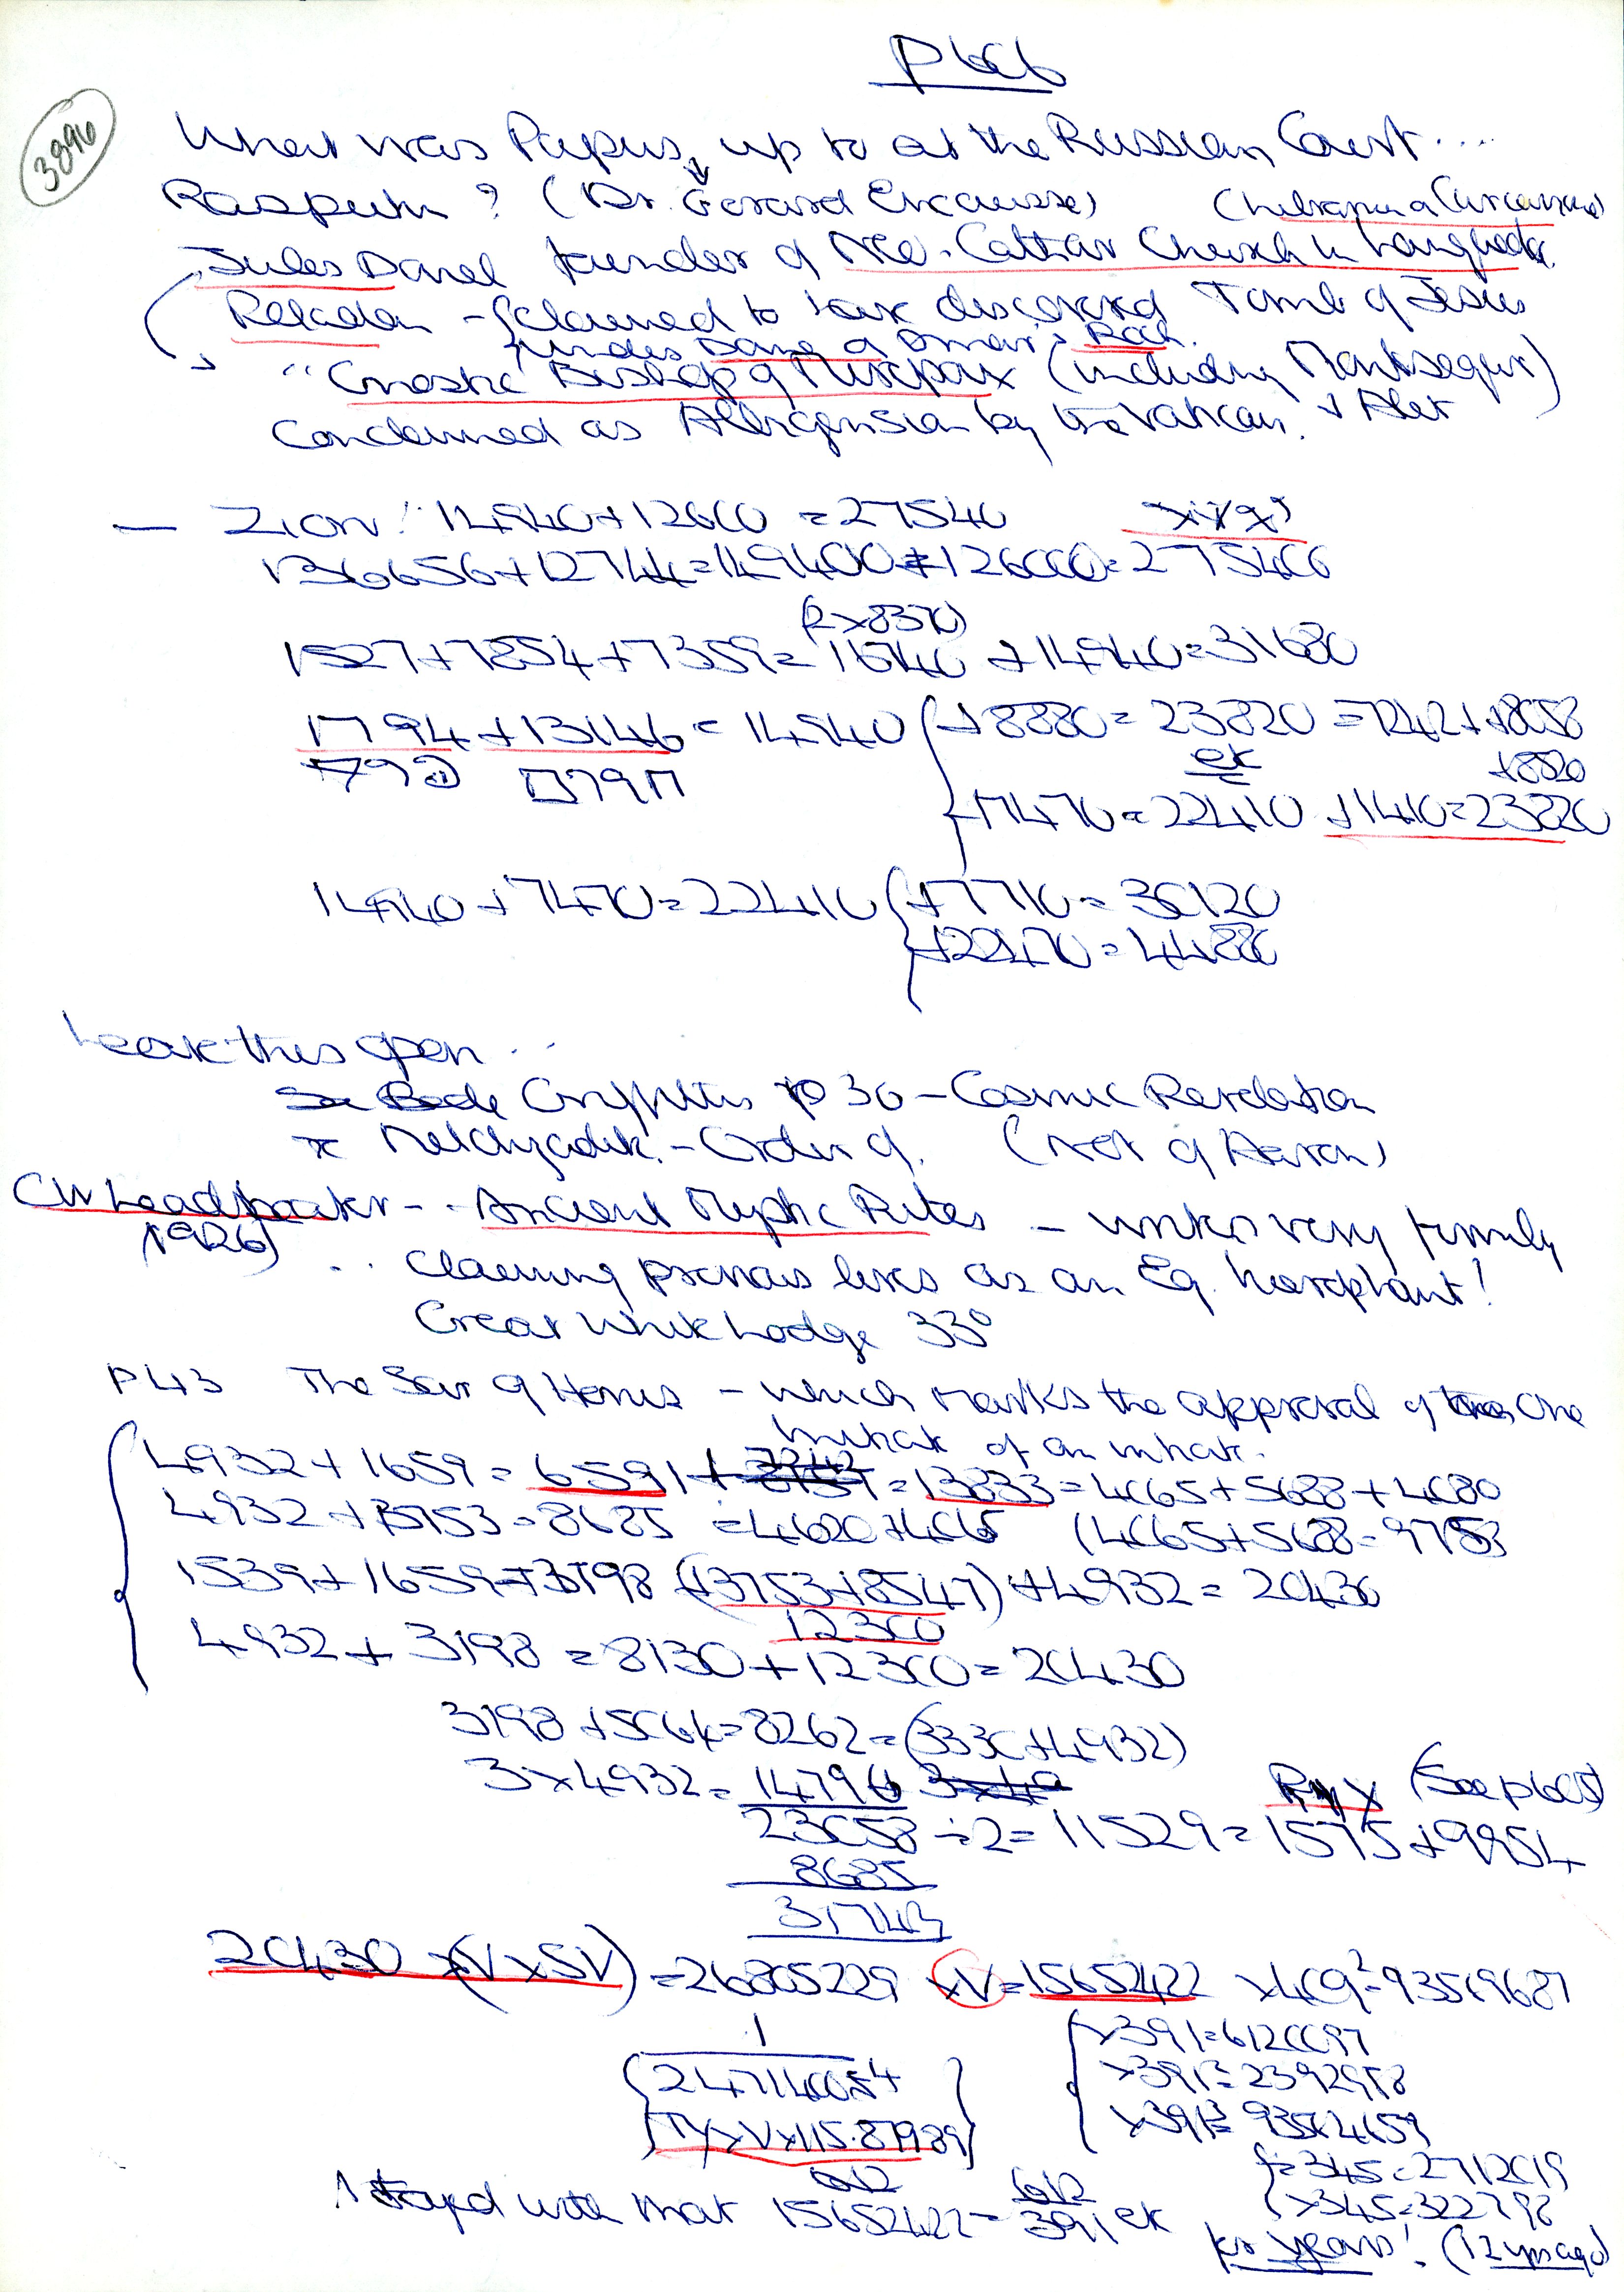 P666
3896
What was Papus, up to at the Russian Court ....
Rasputin ? (Dr. Gerard Encausse)
Jules Doinel founder of Neo-Cathar Church in Languedoc.
Peladan - { claimed to have discovered Tomb of Jesus
{ under Dome of Omar's Rock.
"Gnostic Bishop of Mirepoix (including Montsegur)
Condemned as Albigensian by the Vatican. + Alet
— Zion! 14940+12600 = 27540
136656+12744=149400+126000=275400
(2x8370)
1527+7854+7359= 16740 +14940=31680
1794+13146 = 14940 { +8880= 23820 =7242+8058
ek +8520
+7470=22410 +1410=23820
14940+7470=22410 { +7710= 30120
+22470= 44880
Leave this open ...
See Bede Griffiths p 30 - Cosmic Revelation
Melchizadek. - Order of. (not of Aaron)
CW Leadbeater - - Ancient Mystic Rites - writes very firmly
(1926) .. Claiming previous lives as an Eg. hierophant!
Great White Lodge 33°
P 143 The Star of Horus - which marks the approval of the One
Initiator of an initiate.
4932+1659= 6591+ 7242 =13833=4065+5688+4080
4932+3753=8685 =4620+4065 (4065+5688=9753
1539+1659=3198 (+3753+8547) +4932= 20430
12300
4932+3198 =8130+12300=20430
3198+5064=8262=(3330+4932)
3x4932= 14796
Ryx (See p 665)
23058 ÷2= 11529= 1575+9954
8685
31743
20430 x(VxSV) =26805229 xV=15652422 x409²=93569687
1 { x391=6120097
{ 24714005.4 } x391²=2392958
{ TyxVx115.87989 } x391³=93564659
{ ÷345=2712019
{ x345=322798
I stayed with that 15652422= 391 ek
for years! (12 yrs ago)